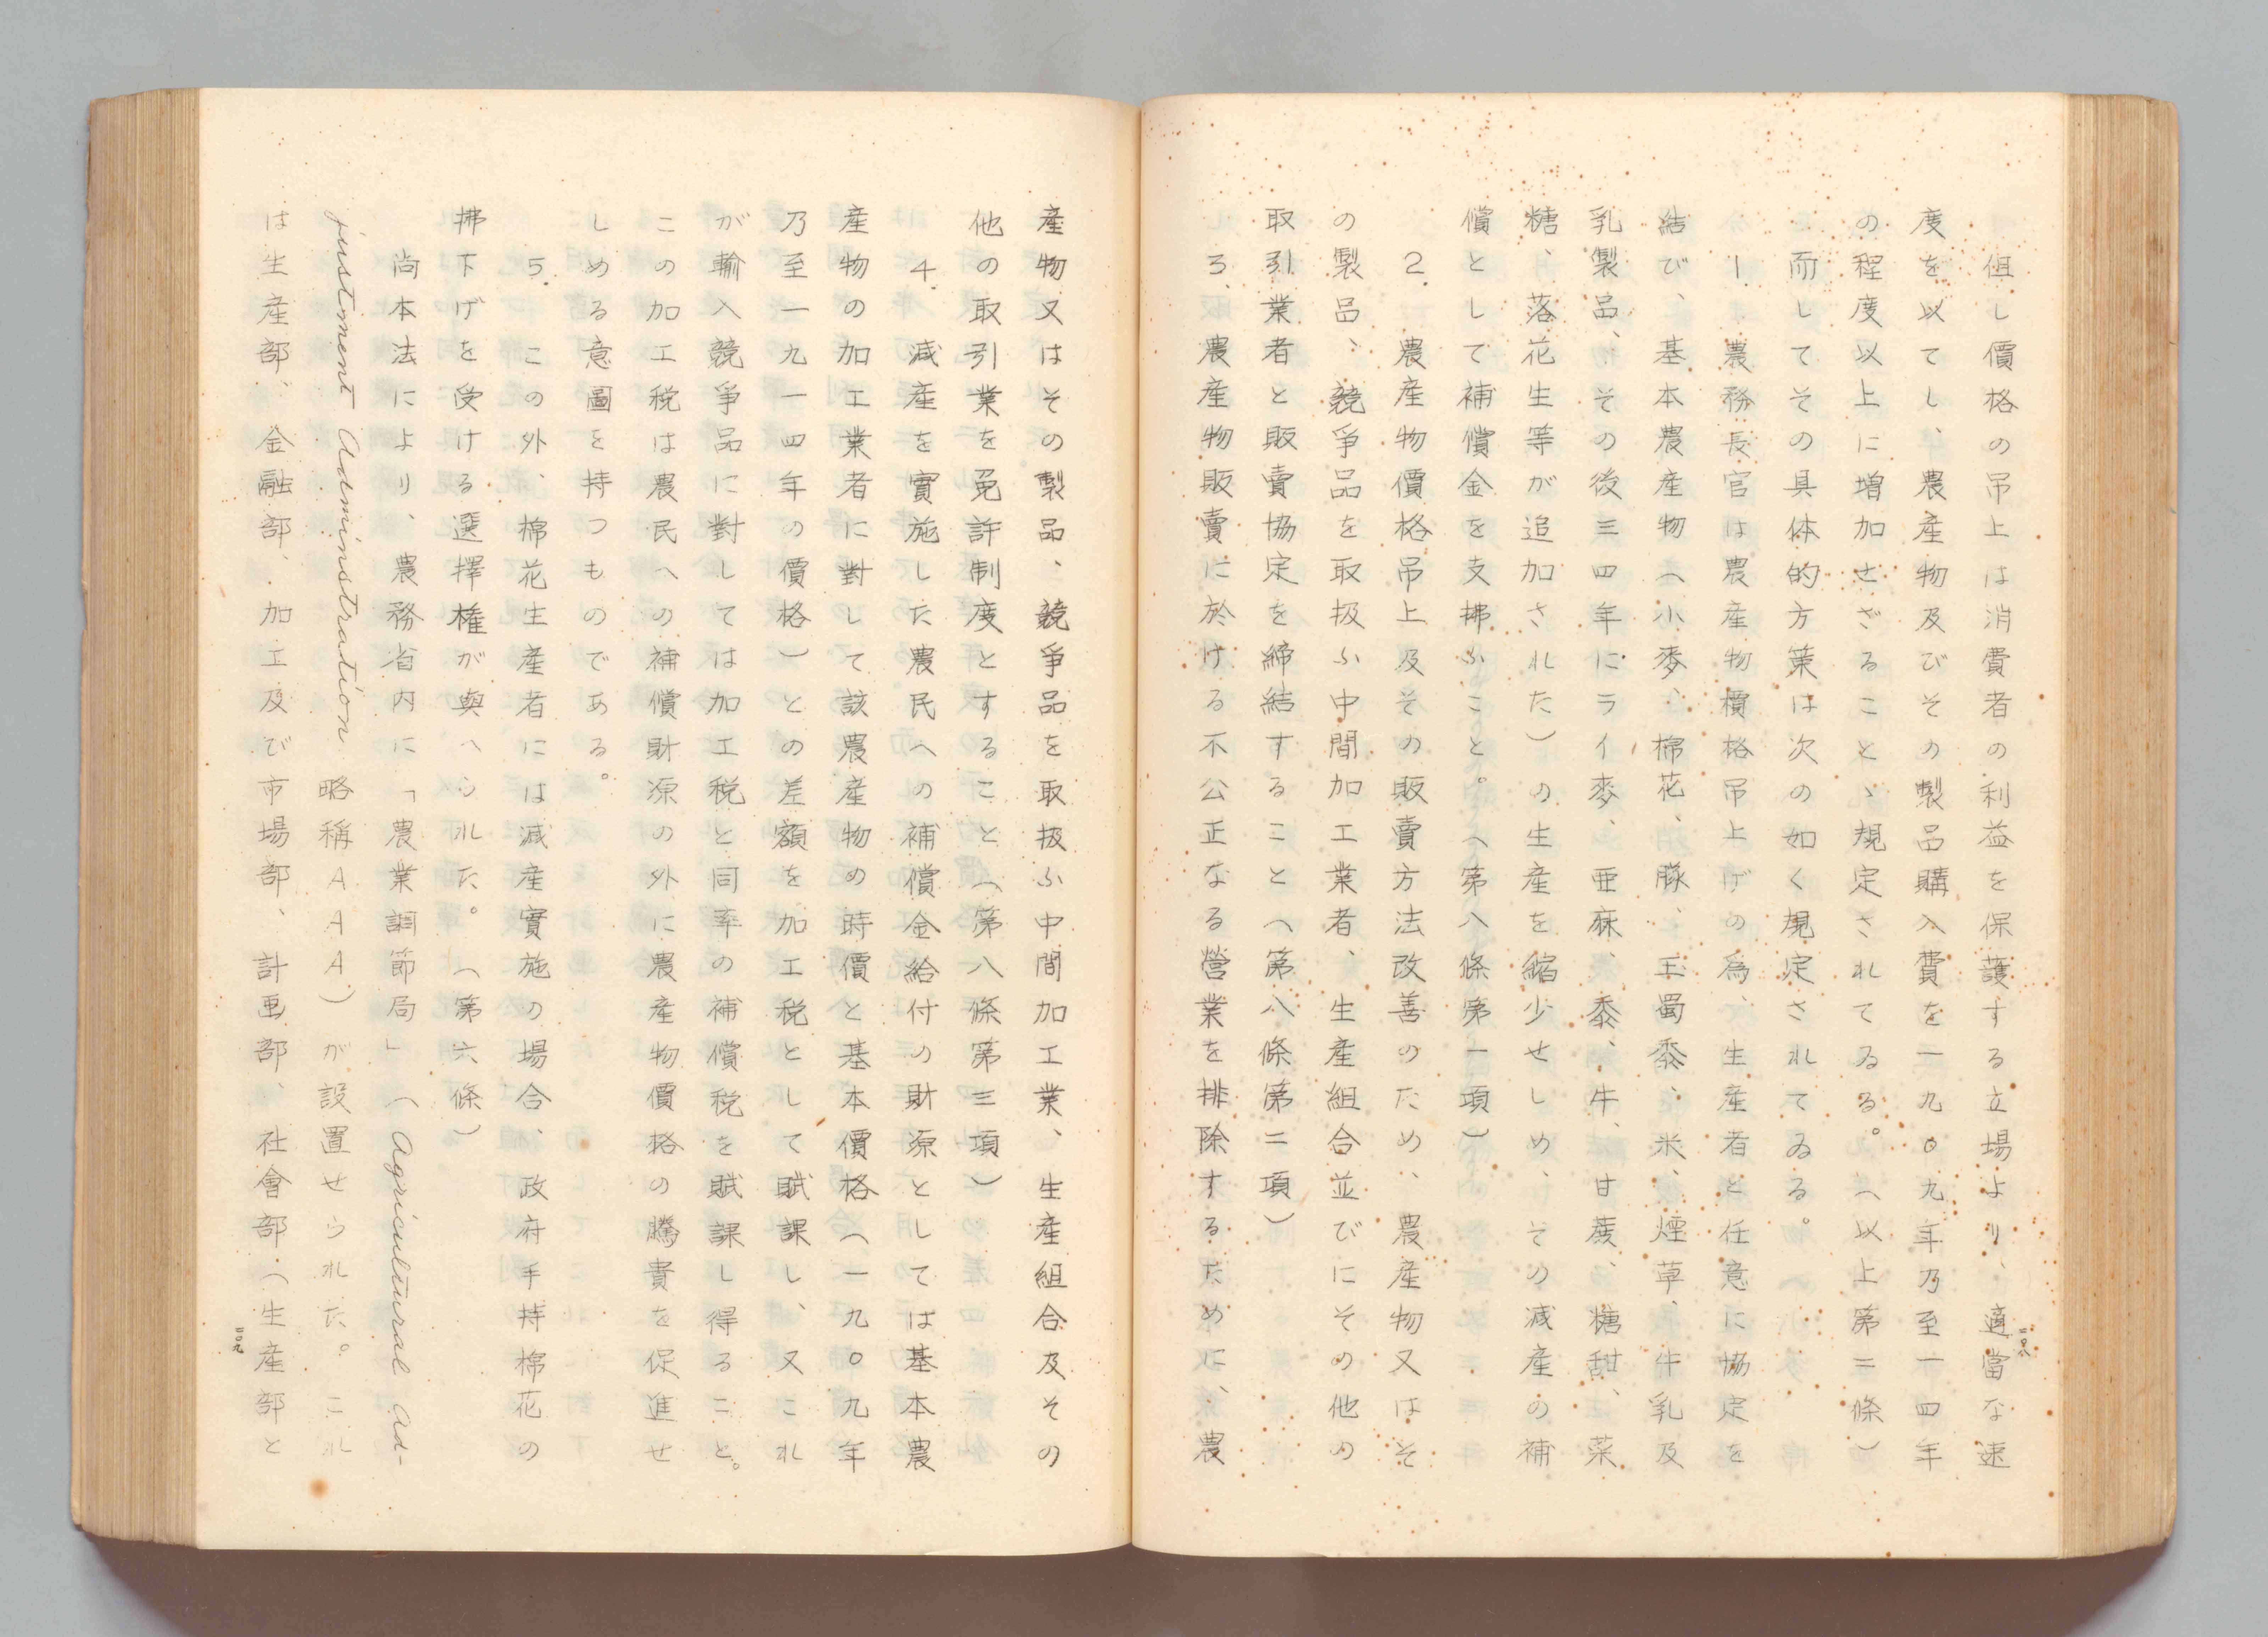 但し價格の吊上は消費者の利益を保護する立場より、適當な速
度を以てし、農産物及びその製品購入費を一九〇九年乃至一四年
の程度以上に増加せざることゝ規定されてゐる。（以上第二條）
而してその具体的方策は次の如く規定されてゐる。
1. 農務長官は農産物價格吊上げの為、生産者と任意に協定を
結び、基本農産物（小麥、棉花、豚、玉蜀黍、米、煙草、牛乳及
乳製品、その後三四年にライ麥、亜麻、黍、牛、甘蔗、糖甜、菜
糖、落花生等が追加された）の生産を縮少せしめ、その減産の補
償として補償金を支拂ふこと。（第八條第一項）
2. 農産物價格吊上及その販賣方法改善のため、農産物又はそ
の製品、競爭品を取扱ふ中間加工業者、生産組合並びにその他の
取引業者と販賣協定を締結すること（第八條第二項）
3. 農産物販賣に於ける不公正なる營業を排除するために、農
二〇八
産物又はその製品、競爭品を取扱ふ中間加工業、生産組合及その
他の取引業を免許制度とすること（第八條第三項）
4. 減産を實施した農民への補償金給付の財源としては基本農
産物の加工業者に對して該農産物の時價と基本價格（一九〇九年
乃至一九一四年の價格）との差額を加工税として賦課し、又これ
が輸入競爭品に對しては加工税と同率の補償税を賦課し得ること。
この加工税は農民への補償財源の外に農産物價格の騰貴を促進せ
しめる意圖を持つものである。
5. この外、棉花生産者には減産實施の場合、政府手持棉花の
拂下げを受ける選擇権が與へられた。（第六條）
尚本法により、農務省内に「農業調節局」（Agricultural Ad-
justment Adminstration 略稱AAA）が設置せられた。これ
は生産部、金融部、加工及び市場部、計画部、社會部（生産部と
二〇九